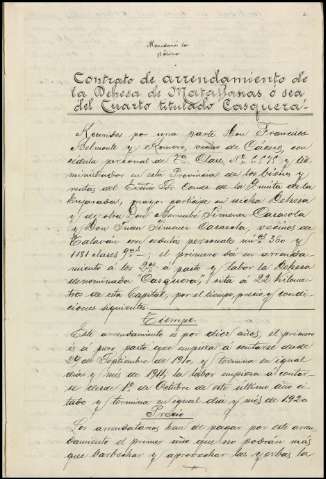 Contrato de arrendamiento de
la Dehesa de Matallanas ó sea
del Cuarto titulado Casquera
Reunidos por una parte Don Francisco
Belmonte y Romero, vecino de Cáceres, con
cédula personal de Clase, Nº y
ministrador en esta Provincia de los bienes y
rentas del Excmo Sor Conde de la Quinta de la
Enjarada, mayor partícipe en dicha Dehesa
y de otra Don Jimenez Casasola
y Don Juan Jimenez Casasola, vecinos de
Talaván con cedulas personales números 350 y
1181 clases el primero da en arrenda-
miento á los á pasto y labor la Dehesa
denominada Casquera, sita á 22 kilome-
tros de esta Capital, por el tiempo, precio y condi-
ciones siguientes
Tiempo
Este arrendamiento es por diez años, el primero
es á puro pasto que empieza á contarse desde
29 de Septiembre de 1910 y termina en igual
dia y mes de 1911, la labor empieza á contar-
se desde 1º de Octubre de este último año ci-
tado y termina en igual dia y mes de 1920
Precio
Los arrendatarios han de pagar por este arren-
damiento el primer año que no podrán más
que barbechar y aprovechar las yerbas la